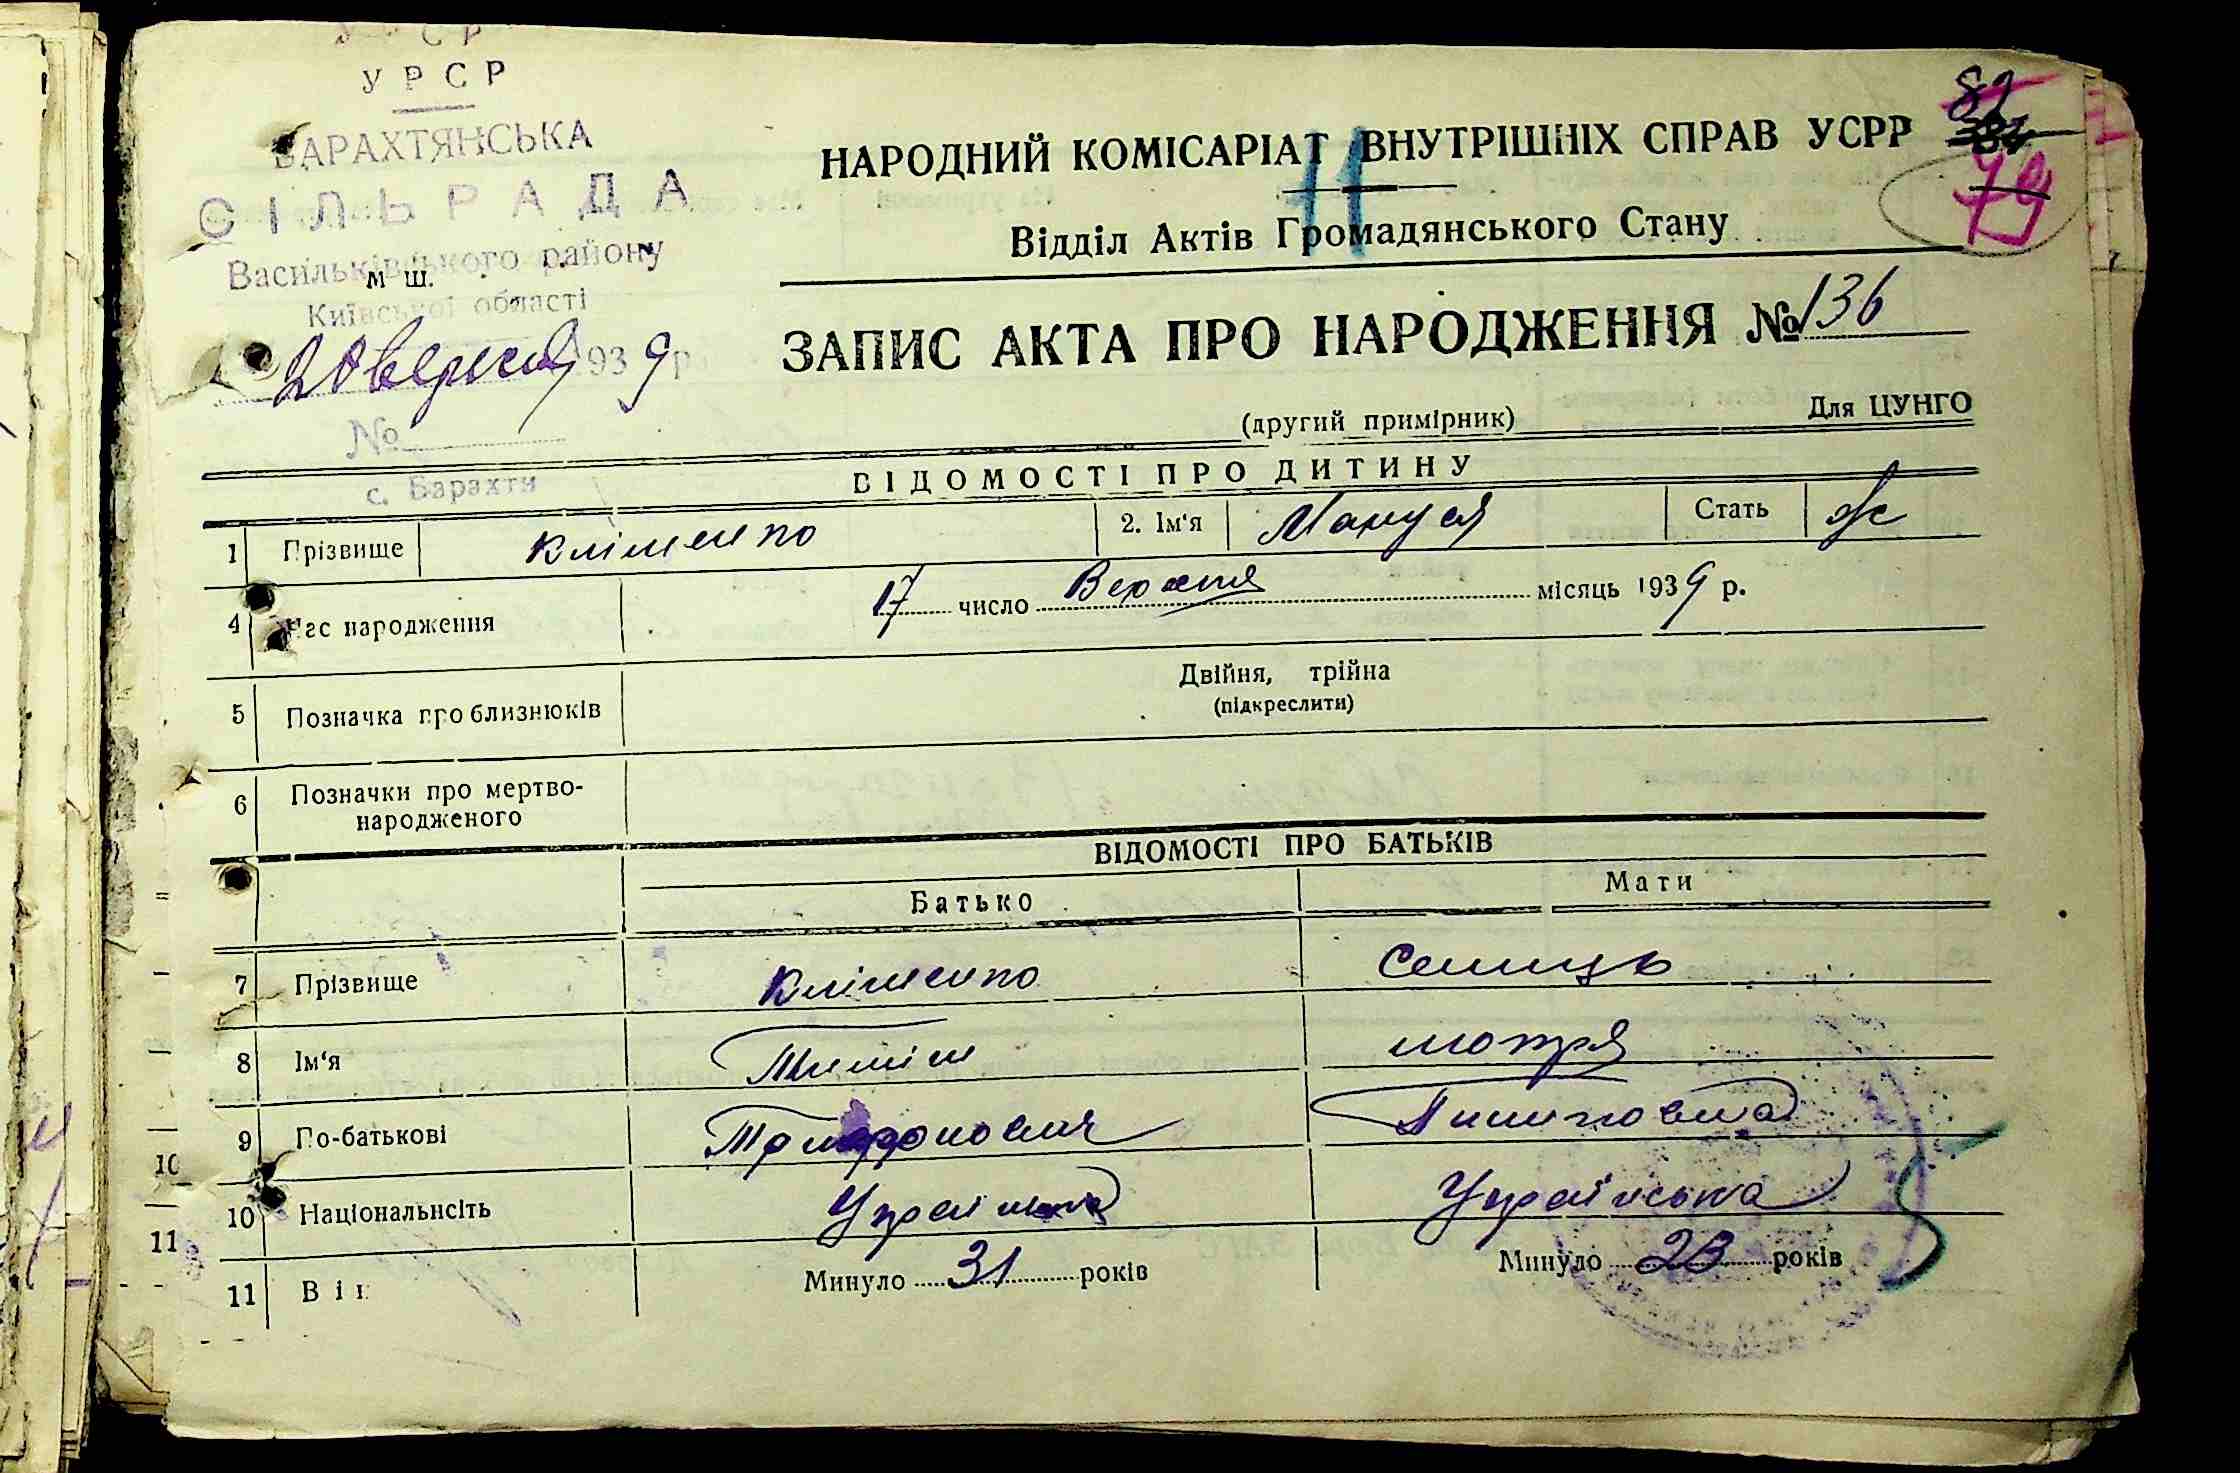 УРСР
БАРАХТЯНСЬКА
СІЛЬРАДА
Васильківського району
м ш.
Київської області
20 вересня 1939 р.
№
с. Барахти
82
79
11
НАРОДНИЙ КОМІСАРІАТ ВНУТРІШНІХ СПРАВ УСРР
Відділ Актів Громадянського Стану
ЗАПИС АКТА ПРО НАРОДЖЕННЯ № 136
(другий примірник) Для ЦУНГО
ВІДОМОСТІ ПРО ДИТИНУ
1 Прізвище Кліменко 2. Ім'я Мануся Стать ж
4 Час народження 17 число Вересня місяць 1939 р.
5 Позначка про близнюків Двійня, трійна
(підкреслити)
6 Позначки про мертво-
народженого
ВІДОМОСТІ ПРО БАТЬКІВ
Батько Мати
7 Прізвище Кліменко Семиць
8 Ім'я Тиміш мотря
9 По-батькові Пилиповна
10 Національнсіть Українська
11 Вік Минуло 31 років Минуло 23 років
10
11